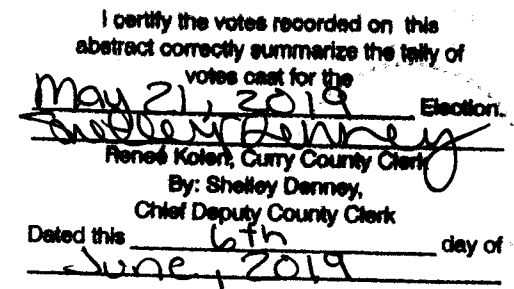 I certify the votes recorded on this
abstract correctly summarize the tally of
votes cast for the
May 21, 2019 Election.
Shelley Denney
Reneé Kolen, Curry County Clerk
By: Shelley Denney,
Chief Deputy County Clerk
Dated this 6th day of
June, 2019